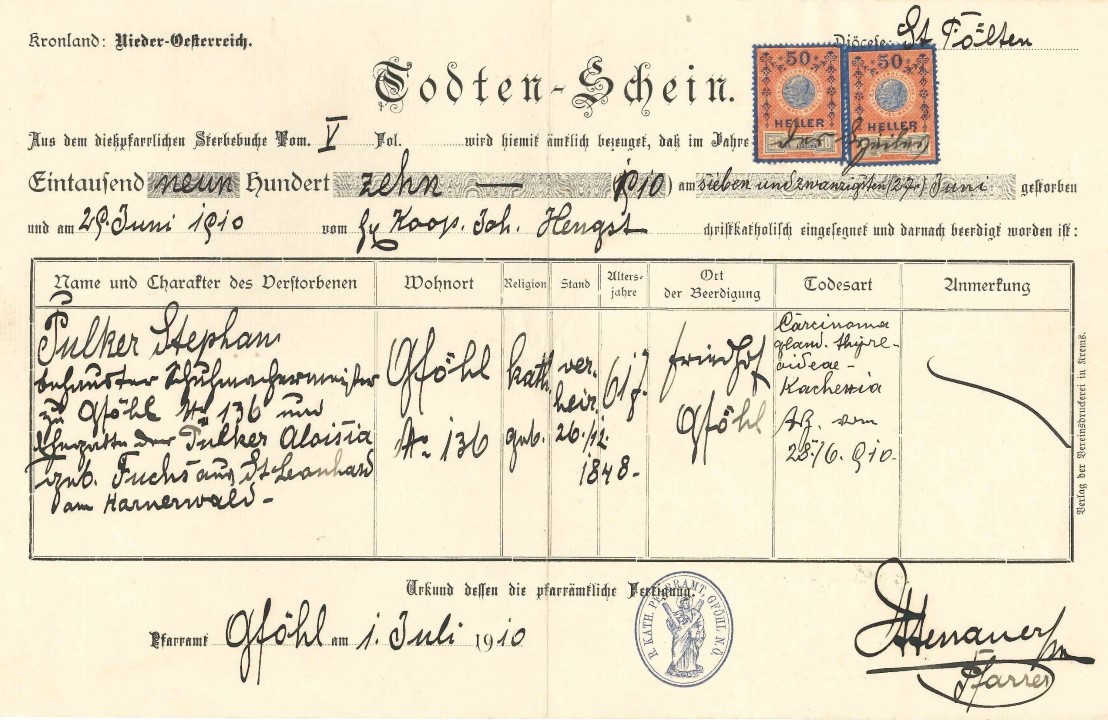 Kronland: Nieder-Oesterreich. Diöcese: St Pölten
Todten-Schein.
50 HELLER 50 HELLER
Aus dem diesspfarrlichen Sterbebuche Tom. V Fol. wird hiemit ämtlich bezeuget, daß im Jahre
Eintausend neun Hundert zehn — (1910) am sieben und zwanzigsten (27.) Juni gestorben
und am 29. Juni 1910 vom Koop. Joh. Hengst christkatholisch eingesegnet und darnach beerdigt worden ist:
Name und Charakter des Verstorbenen Wohnort Religion Stand Alters-jahre Ort der Beerdigung Todesart Anmerkung
Pulker Stephan
behauster Schuhmachermeister
zu Gföhl Nr 136 und
Ehegatte der Pulker Aloisia
geb. Fuchs aus St Leonhard
am Hornerwald -
Gföhl
Nr 136
kath.
ver-
heir.
61 J.
geb. 26./12.
1848-
Friedhof
Gföhl
Carcinoma
gland. thyre-
oideae-
Kachexia
vom
28./6. 910-
Verlag der Vereinsdruckerei in Krems.
Urkund dessen die pfarrämtliche Fertigung.
Pfarramt Gföhl am 1. Juli 1910
R. KATH. PFARRAMT, GFÖHL N.Ö.
Pfarrer